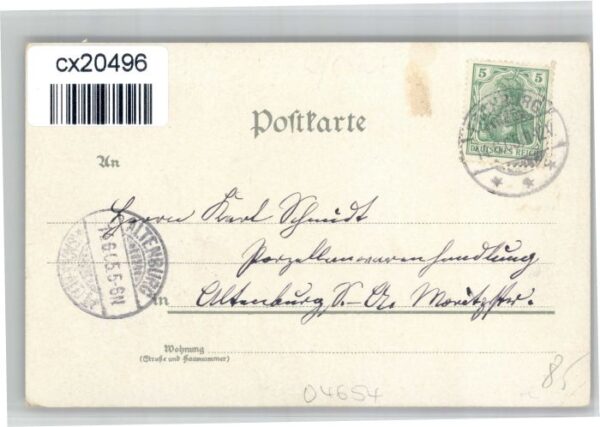 cx20496
5 5
DEUTSCHES REICH
Postkarte
An
Herrn Karl Schmidt
Porzellanwarenhandlung
in Altenburg S.-A. Moritzstr.
ALTENBURG
5-6N
Wohnung
(Straße und Hausnummer)
04654
85